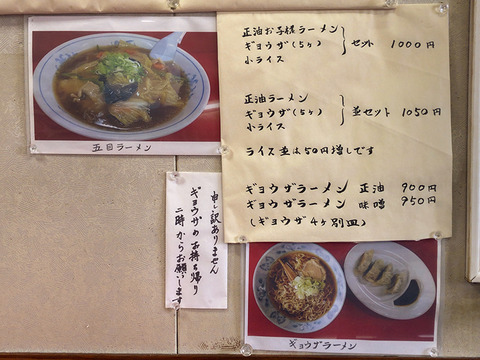 五目ラーメン
正油お子様ラーメン
ギョウザ(5ヶ)
小ライス
セット 1000円
正油ラーメン
ギョウザ(5ヶ)
小ライス
並セット 1050円
ライス並は50円増しです
ギョウザラーメン 正油 900円
ギョウザラーメン 味噌 950円
(ギョウザ4ヶ別皿)
申し訳ありません
ギョウザのお持ち帰り
二時からお願いします
ギョウザラーメン